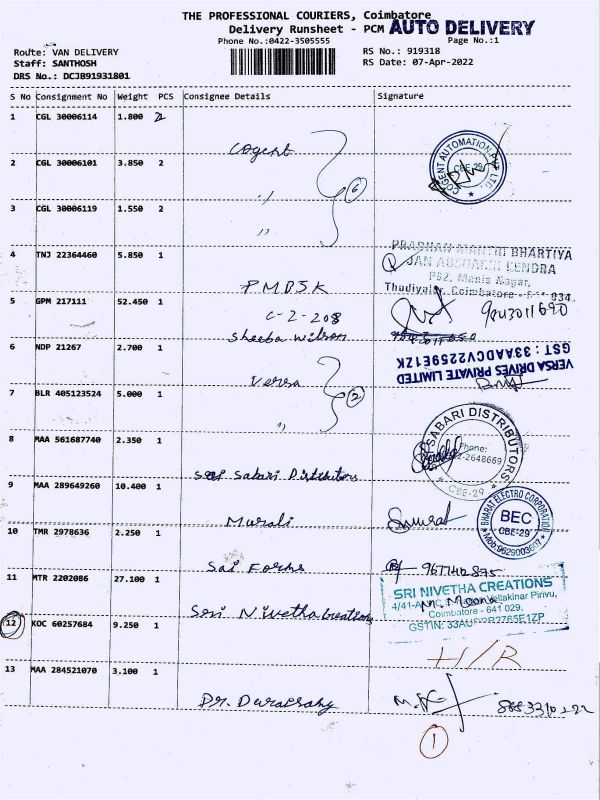 THE PROFESSIONAL COURIERS, Coimbatore
Delivery Runsheet - PCM AUTO DELIVERY
Phone No.:0422-3505555 Page No.:1
Route: VAN DELIVERY RS No.: 919318
Staff: SANTHOSH RS Date: 07-Apr-2022
DRS No.: DCJB91931801
S No Consignment No Weight PCS Consignee Details Signature
1 CGL 30006114 1.800 2
Cogent
COGENT AUTOMATION PVT. LTD. CBE-29
2 CGL 30006101 3.850 2
,, 6
3 CGL 30006119 1.550 2
,,
4 TNJ 22364460 5.850 1
PMDSK
BHARTIYA
JAN KENDRA
P92, Manis Nagar,
Thudiyalur, Coimbatore - 034.
5 GPM 217111 52.450 1
C-2-208
Sheeba Wilson
9843011690
6 NDP 21267 2.700 1
Versa
VERSA DRIVES PRIVATE LIMITED
GST : 33AADCV2259E1ZK
7 BLR 405123524 5.000 1
,, 2
8 MAA 561687740 2.350 1
Sabari Distributors
SABARI DISTRIBUTORS
Phone:
2-2648669
CBE-29
9 MAA 289649260 10.400 1
Murali
BHARAT ELECTRO CORPORATION
BEC
CBE-29
10 TMR 2978636 2.250 1
Sai Forms
11 MTR 2202086 27.100 1
Sri Nivetha Creations
SRI NIVETHA CREATIONS
Vellakinar Pirivu,
Coimbatore - 641 029.
12 KOC 60257684 9.250 1
H/R
13 MAA 284521070 3.100 1
Dr. Duraisamy
1